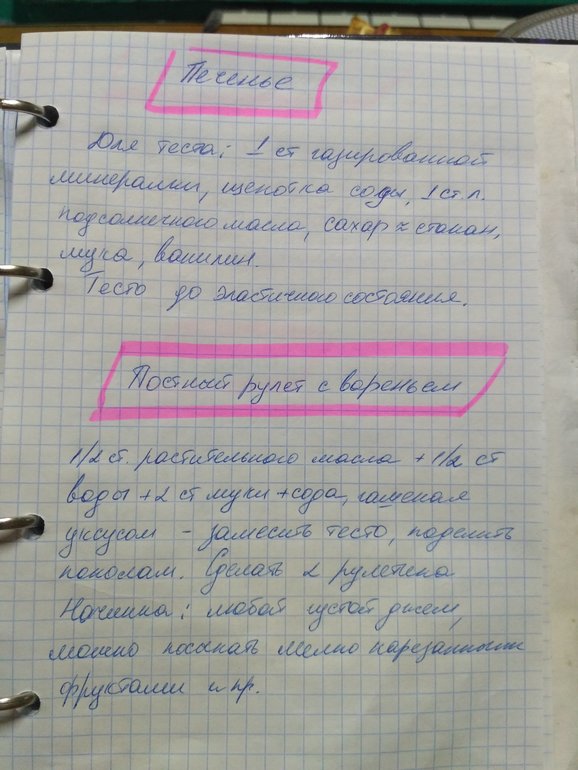 Печенье
Для теста: 1 ст газированной
минералки, щепотка соды, 1 ст.л.
подсолнечного масла, сахар ≈ стакан,
мука, ванилин.
Тесто до эластичного состояния.
Постный рулет с вареньем
1/2 ст. растительного масла + 1/2 ст
воды + 2 ст муки + сода, гашеная
уксусом – замесить тесто, поделить
пополам. Сделать 2 рулетика
Начинка: любой густой джем,
можно посыпать мелко нарезанными
фруктами и пр.